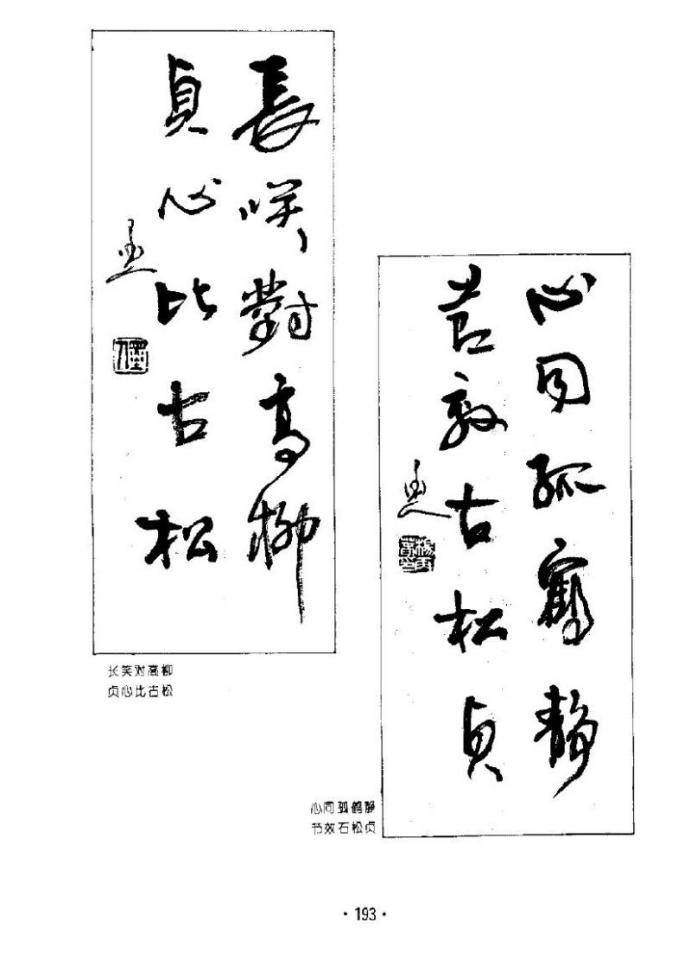 長咲對高柳
貞心比古松
长笑对高柳
贞心比古松
心同孤鶴静
節效古松貞
心同孤鹤静
节效石松贞
·193·